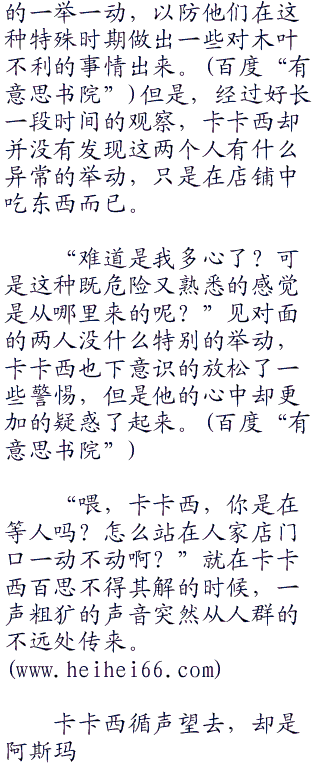 的一举一动，以防他们在这
种特殊时期做出一些对木叶
不利的事情出来。(百度“有
意思书院”)但是，经过好长
一段时间的观察，卡卡西却
并没有发现这两个人有什么
异常的举动，只是在店铺中
吃东西而已。
“难道是我多心了？可
是这种既危险又熟悉的感觉
是从哪里来的呢？”见对面
的两人没什么特别的举动，
卡卡西也下意识的放松了一
些警惕，但是他的心中却更
加的疑惑了起来。(百度“有
意思书院”)
“喂，卡卡西，你是在
等人吗？怎么站在人家店门
口一动不动啊？”就在卡卡
西百思不得其解的时候，一
声粗犷的声音突然从人群的
不远处传来。
(www.heihei66.com)
卡卡西循声望去，却是
阿斯玛